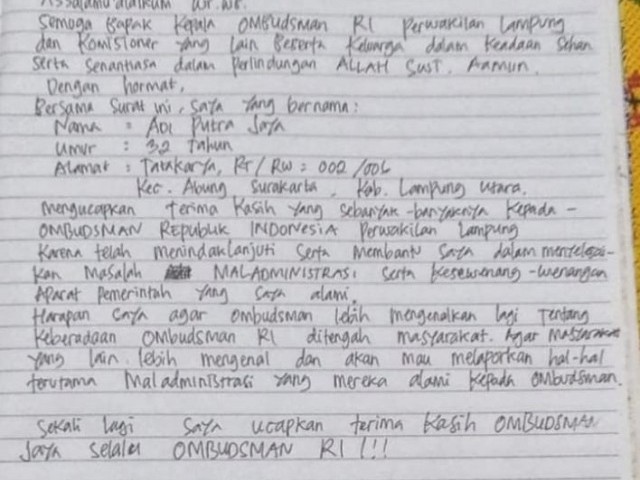 Assalamu'alaikum Wr. Wb.
Semoga Bapak Kepala OMBUDSMAN RI Perwakilan Lampung
dan Komisioner yang lain Beserta Keluarga dalam Keadaan Sehat
Serta Senantiasa dalam Perlindungan ALLAH SWT. Aamiin.
Dengan hormat,
Bersama Surat ini, Saya yang bernama :
Nama : ADI Putra Jaya
Umur : 32 Tahun
Alamat : Tatakarya, RT/RW : 002/006
Kec. Abung Surakarta, Kab. Lampung Utara.
mengucapkan terima Kasih yang sebanyak-banyaknya Kepada -
OMBUDSMAN Republik INDONESIA Perwakilan Lampung
Karena telah menindaklanjuti Serta Membantu Saya dalam menyelesai-
kan Masalah MALADMINISTRASI serta Kesewenang-wenangan
Aparat Pemerintah yang Saya alami.
Harapan Saya agar Ombudsman lebih mengenalkan lagi Tentang
Keberadaan OMBUDSMAN RI ditengah masyarakat. Agar Masyarakat
yang lain lebih mengenal dan akan mau melaporkan hal-hal
terutama Maladministrasi yang mereka alami Kepada OMbudsman.
Sekali lagi Saya ucapkan terima Kasih OMBUDSMAN
Jaya Selalu OMBUDSMAN RI !!!